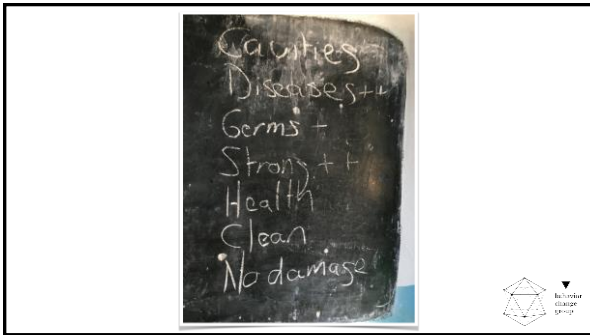 Cavities
Diseases++
Germs +
Strong + +
Health
Clean
No damage
behavior
change
group